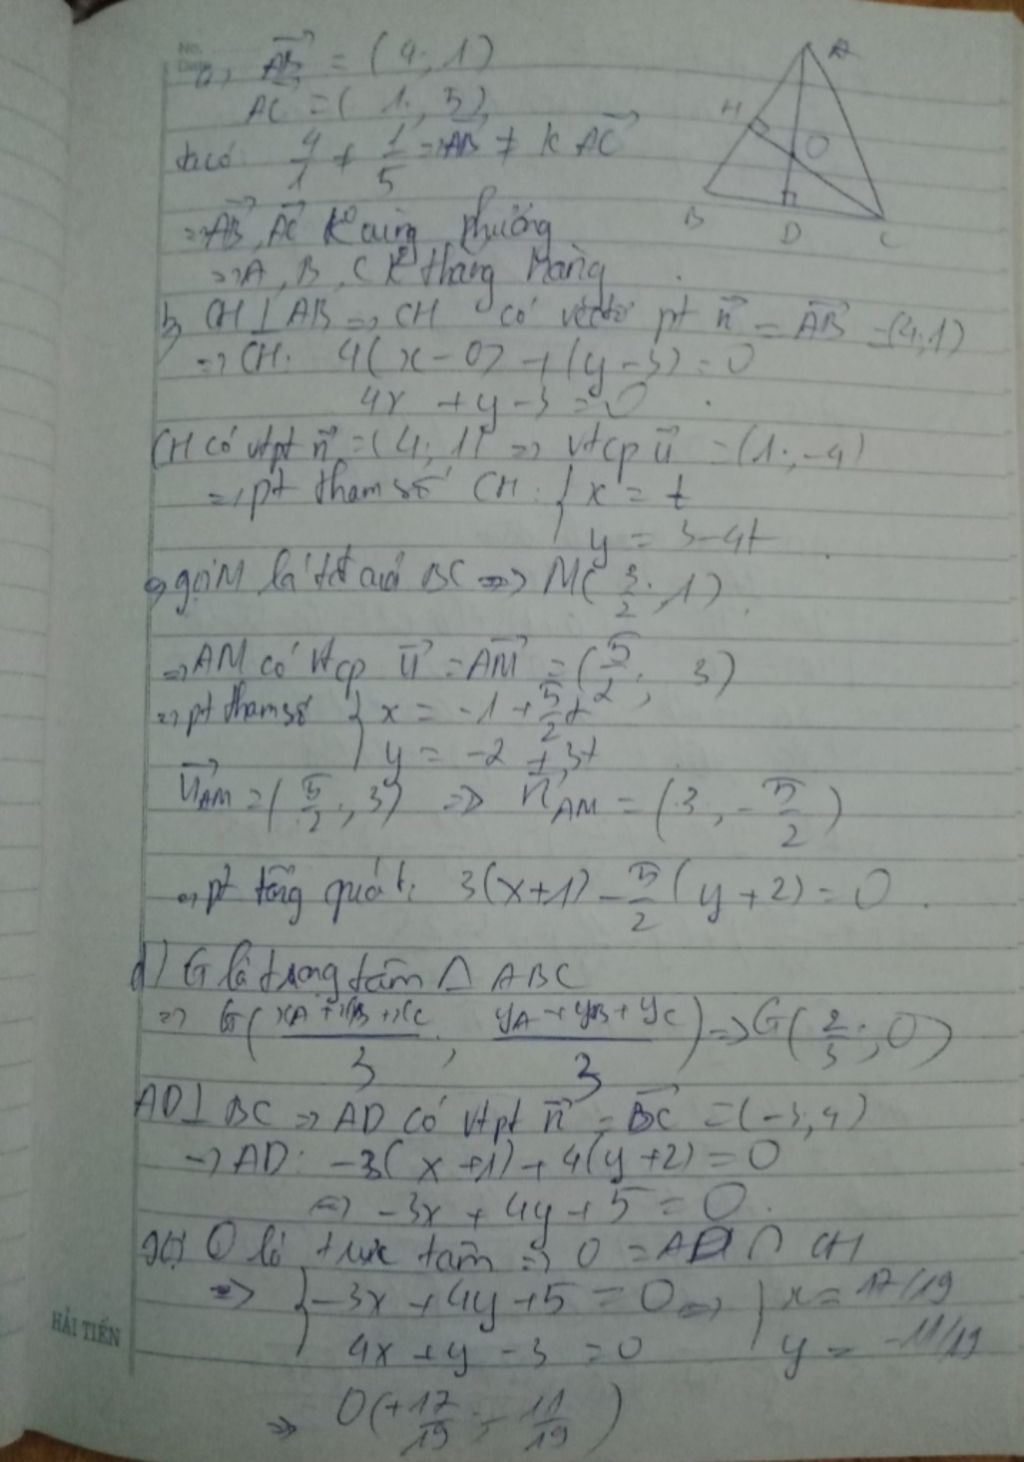 No.
a, AB = (4; 1)
AC = ( 1; 5)
ta có 4/1 ≠ 1/5 => AB ≠ k AC
=> AB, AC k° cùng phương
=> A, B, C k° thẳng hàng
A
H
O
B
D
C
b, CH ⊥ AB => CH có vectơ pt n = AB = (4;1)
=> CH: 4(x-0) + (y-3) = 0
4x + y - 3 = 0
CH có vtpt n = (4; 1) => vtcp u = (1; -4)
=> pt tham số CH: { x = t
y = 3-4t
c, gọi M là tđ của BC => M( 3/2; 1)
=> AM có vtcp u = AM = ( 5/2; 3)
=> pt tham số { x = -1 + 5/2 t
y = -2 + 3t
u AM = ( 5/2; 3) => n AM = (3, - 5/2)
=> pt tổng quát: 3(x+1) - 5/2 (y+2) = 0
d) G là trọng tâm Δ ABC
=> G( xA + xB + xC / 3 ; yA + yB + yC / 3 ) => G( 2/3; 0)
AD ⊥ BC => AD có vtpt n = BC = (-3,4)
=> AD: -3( x +1) + 4(y+2) = 0
<=> -3x + 4y + 5 = 0
O là trực tâm => O = AD ∩ CH
=> { -3x + 4y + 5 = 0 <=> { x = 17/19
4x + y - 3 = 0 y = -11/19
=> O( +17/19 ; - 11/19 )
HẢI TIẾN